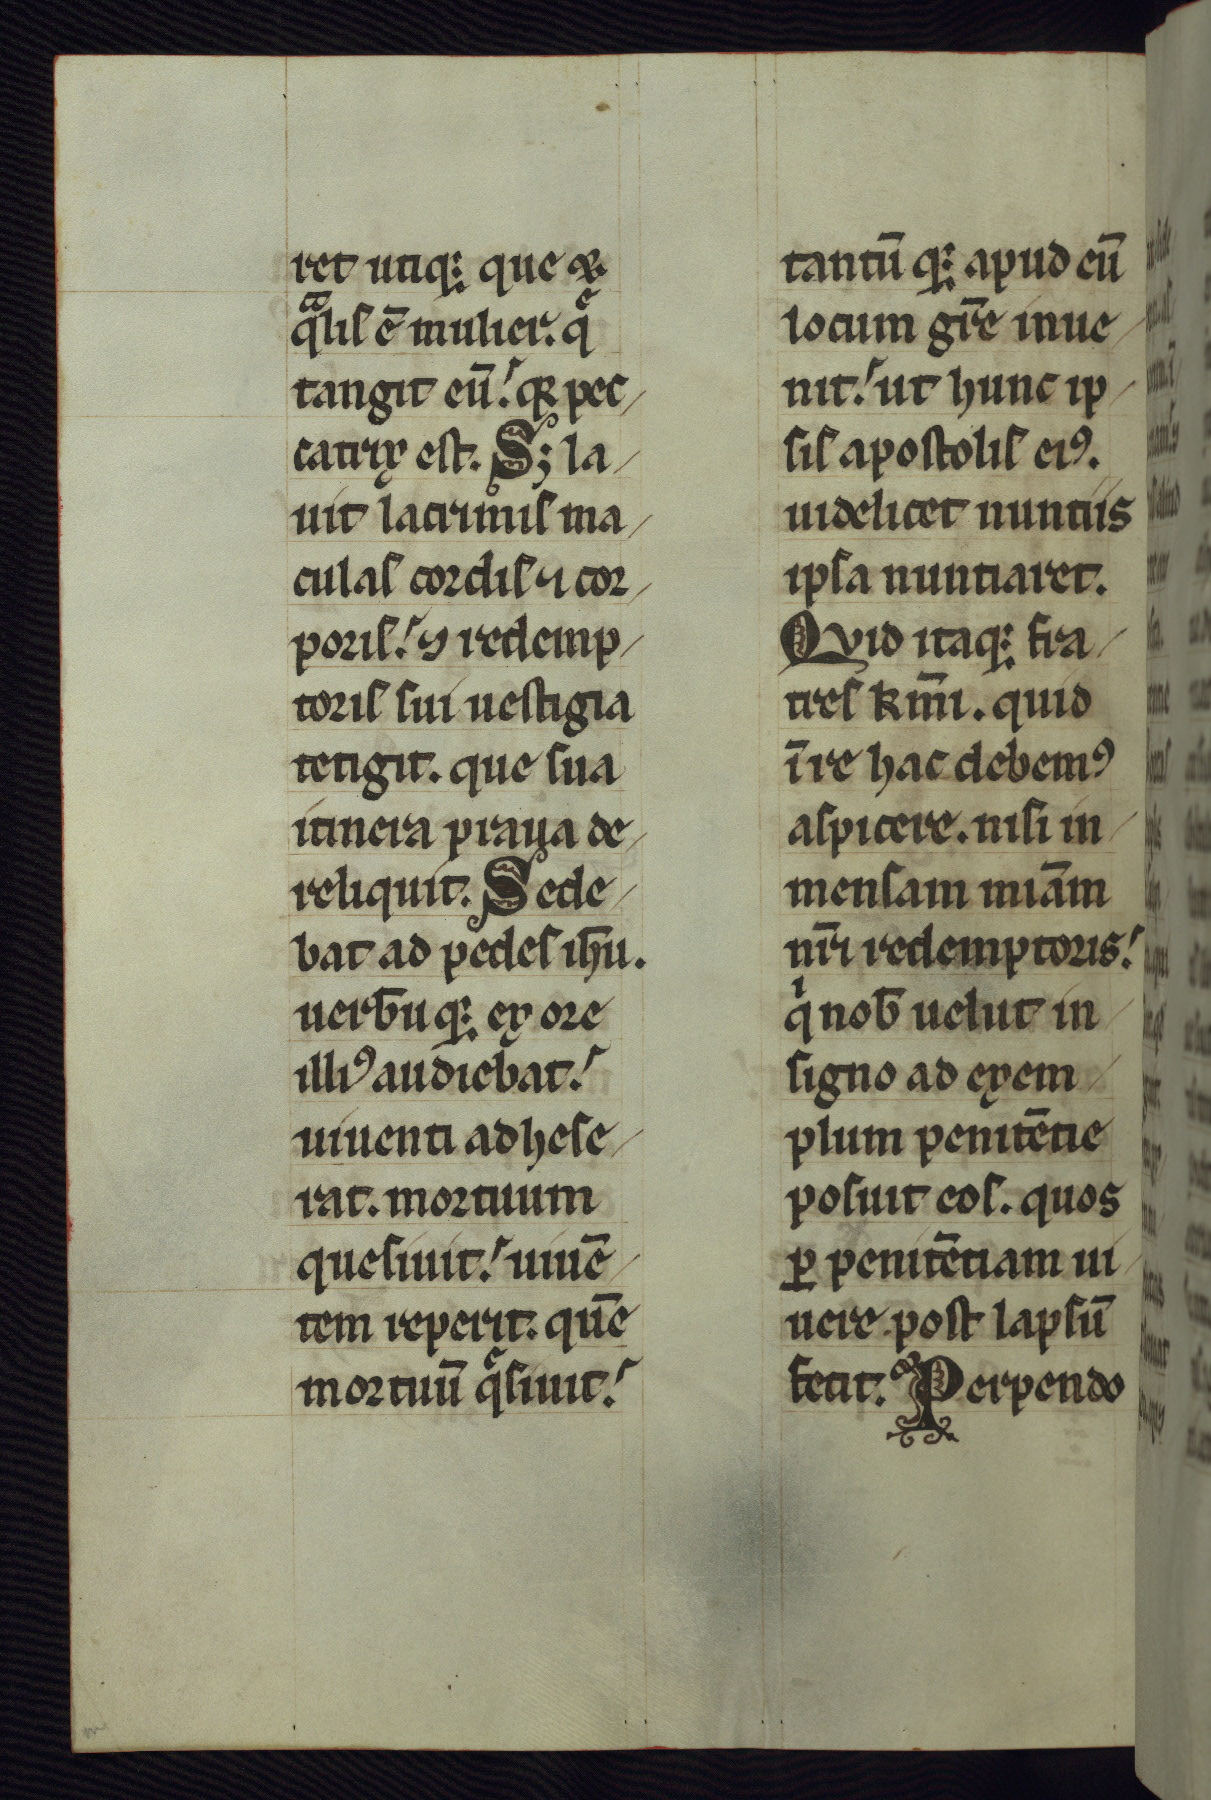 ret utiq; que ⁊
qͣlis ē mulier. q̄
tangit eū! qꝛ pec
catrix est. S; la
uit lacrimis ma
culas cordis ⁊ cor
poris! ⁊ redemp
toris sui uestigia
tetigit. que sua
itinera praua de
reliquit. Sede
bat ad pedes ihu̅.
uerbu̅q; ex ore
illiꝰ audiebat!
uiuenti adhese
rat. mortuum
quesiuit! uiuē
tem reperit. quē
mortuū q̄siuit!
tantū q; apud eū
locum gr̄e inue
nit! ut hunc ip
sis apostolis eiꝰ.
uidelicet nuntiis
ipsa nuntiaret.
Quid itaq; fra
tres km̄i. quid
ī re hac debemꝰ
aspicere. nisi in
mensam miām
nr̄i redemptoris!
qͥ nob̄ uelut in
signo ad exem
plum penitētie
posuit eos. quos
ꝑ penitētiam ui
uere post lapsū
fecit. Perpendo